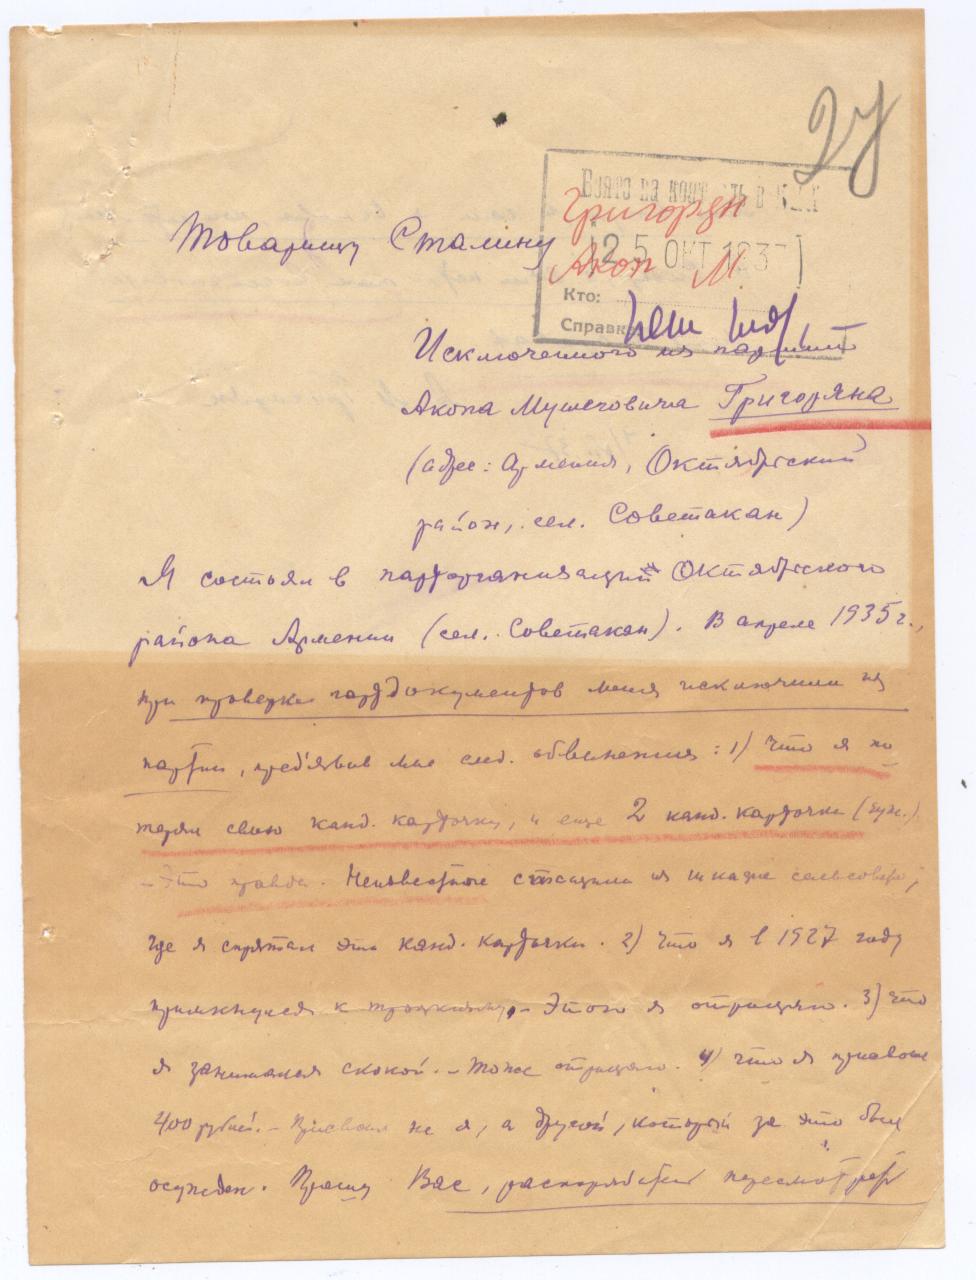 27
Взято на контроль в К.П.К
Григорян
25 ОКТ 1937
Акоп М
Кто:
Справка
Товарищу Сталину
Исключенного из партии
Акопа Мушеговича Григоряна
(адрес: Армения, Октябрьский
район, сел. Советакан)
Я состоял в парторганизации Октябрьского
района Армении (сел. Советакан). В апреле 1935 г.,
при проверке партдокументов меня исключили из
партии, предъявив мне след. обвинения: 1) Что я по-
терял свою канд. карточку, и еще 2 канд. карточки (чуж.)
- Это правда. Неизвестные стащили из шкафа сельсовета,
где я спрятал эти канд. карточки. 2) Что я в 1927 году
примкнулся к троцкизму, - Этого я отрицаю. 3) Что
я занимался скокой. - Тоже отрицаю. 4) Что я присвоил
400 рублей. - Присвоил не я, а другой, который за это был
осужден. Прошу Вас, распорядиться пересмотреть